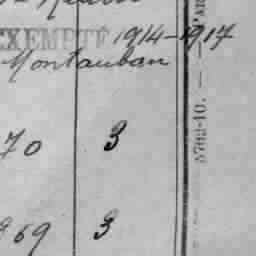 EXEMPTÉ 1914-1917
Montauban
70 3
969 3
5762-10.